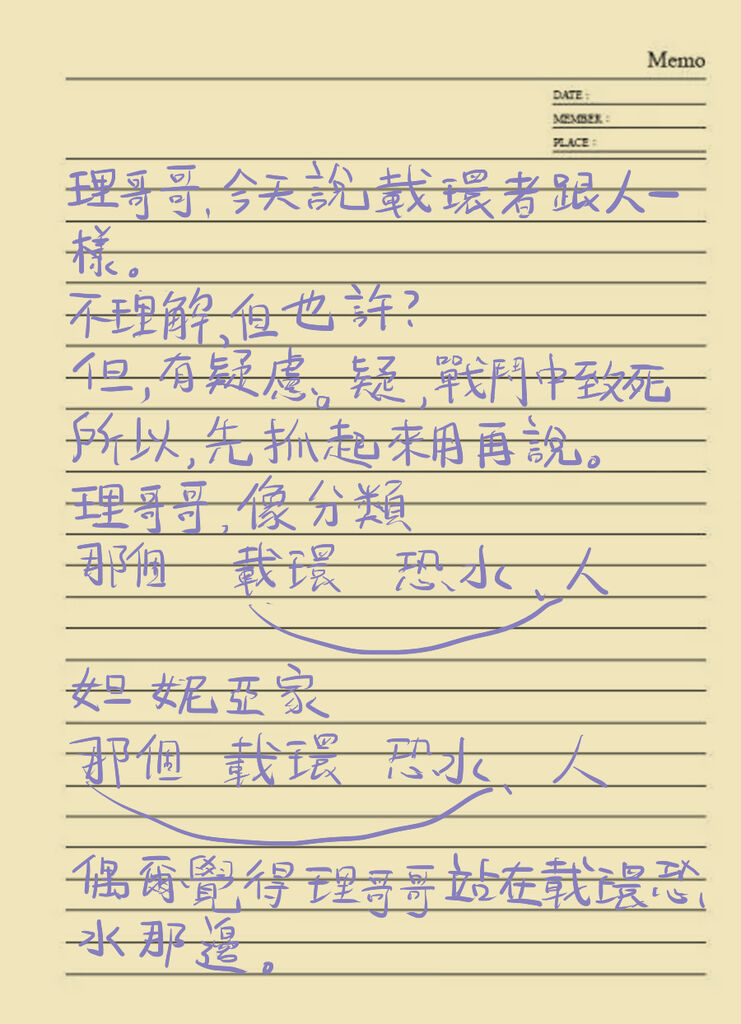 Memo
DATE：
MEMBER：
PLACE：
理哥哥,今天說載環者跟人一
樣。
不理解,但也許?
但,有疑慮。疑,戰鬥中致死
所以,先抓起來用再說。
理哥哥,像分類
那個 載環 恐水、人
妲妮亞家
那個 載環 恐水、人
偶爾覺得理哥哥站在載環恐
水那邊。